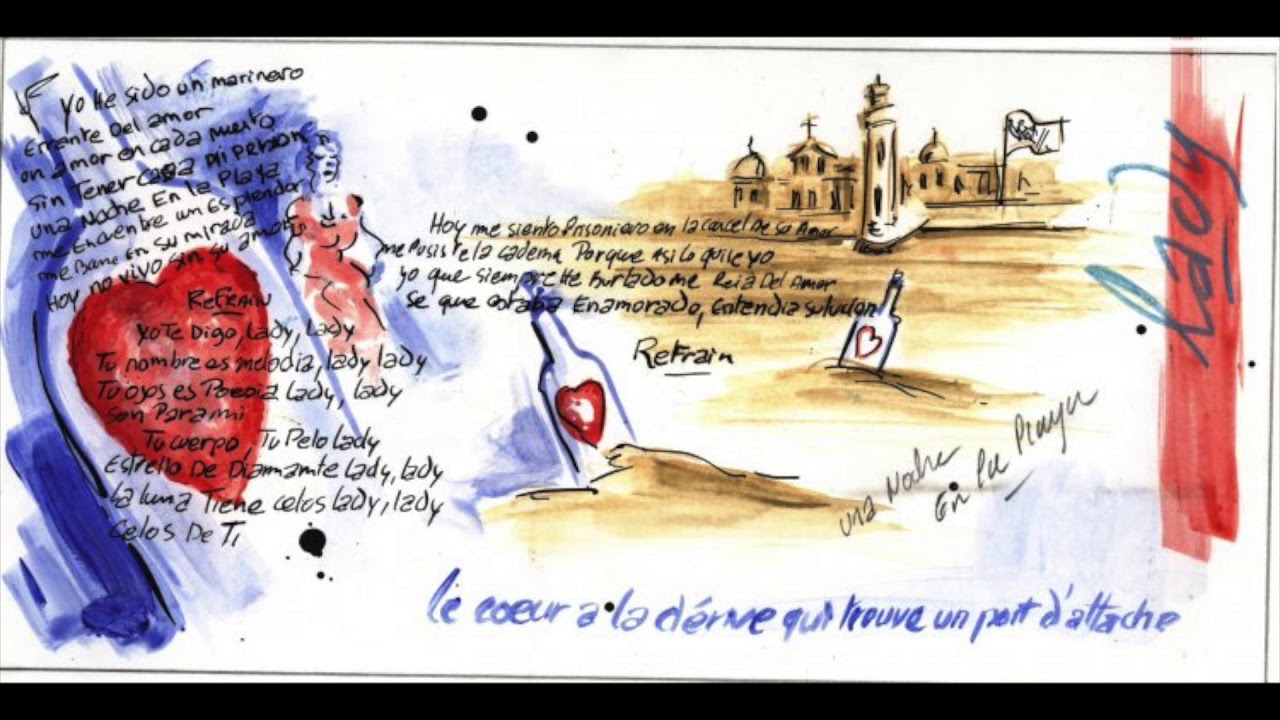 Yo He sido un marinero
Errante Del amor
un amor en cada Puerto
sin Tener Casa Ni
una Noche En la Playa
me Encontre un Esplendor
me Bañe En su mirada
Hoy no vivo sin su amor
Refrain
Yo Te Digo, lady, lady
Tu nombre es melodia, lady lady
Tu ojos es Poesia Lady, lady
son Para mi
Tu cuerpo, Tu Pelo Lady
Estrella De Diamante Lady, lady
la luna Tiene celos lady, lady
celos De Ti
Hoy me siento Prisoniero en la carcel De su Amor
me Pusiste la cadema Porque Asi lo quise yo
yo que siempre He burlado me Reia Del Amor
Se que estaba Enamorado, Entendia su
Refrain
una Noche
En la Playa
lady
le coeur a la dérive qui trouve un port d'attache